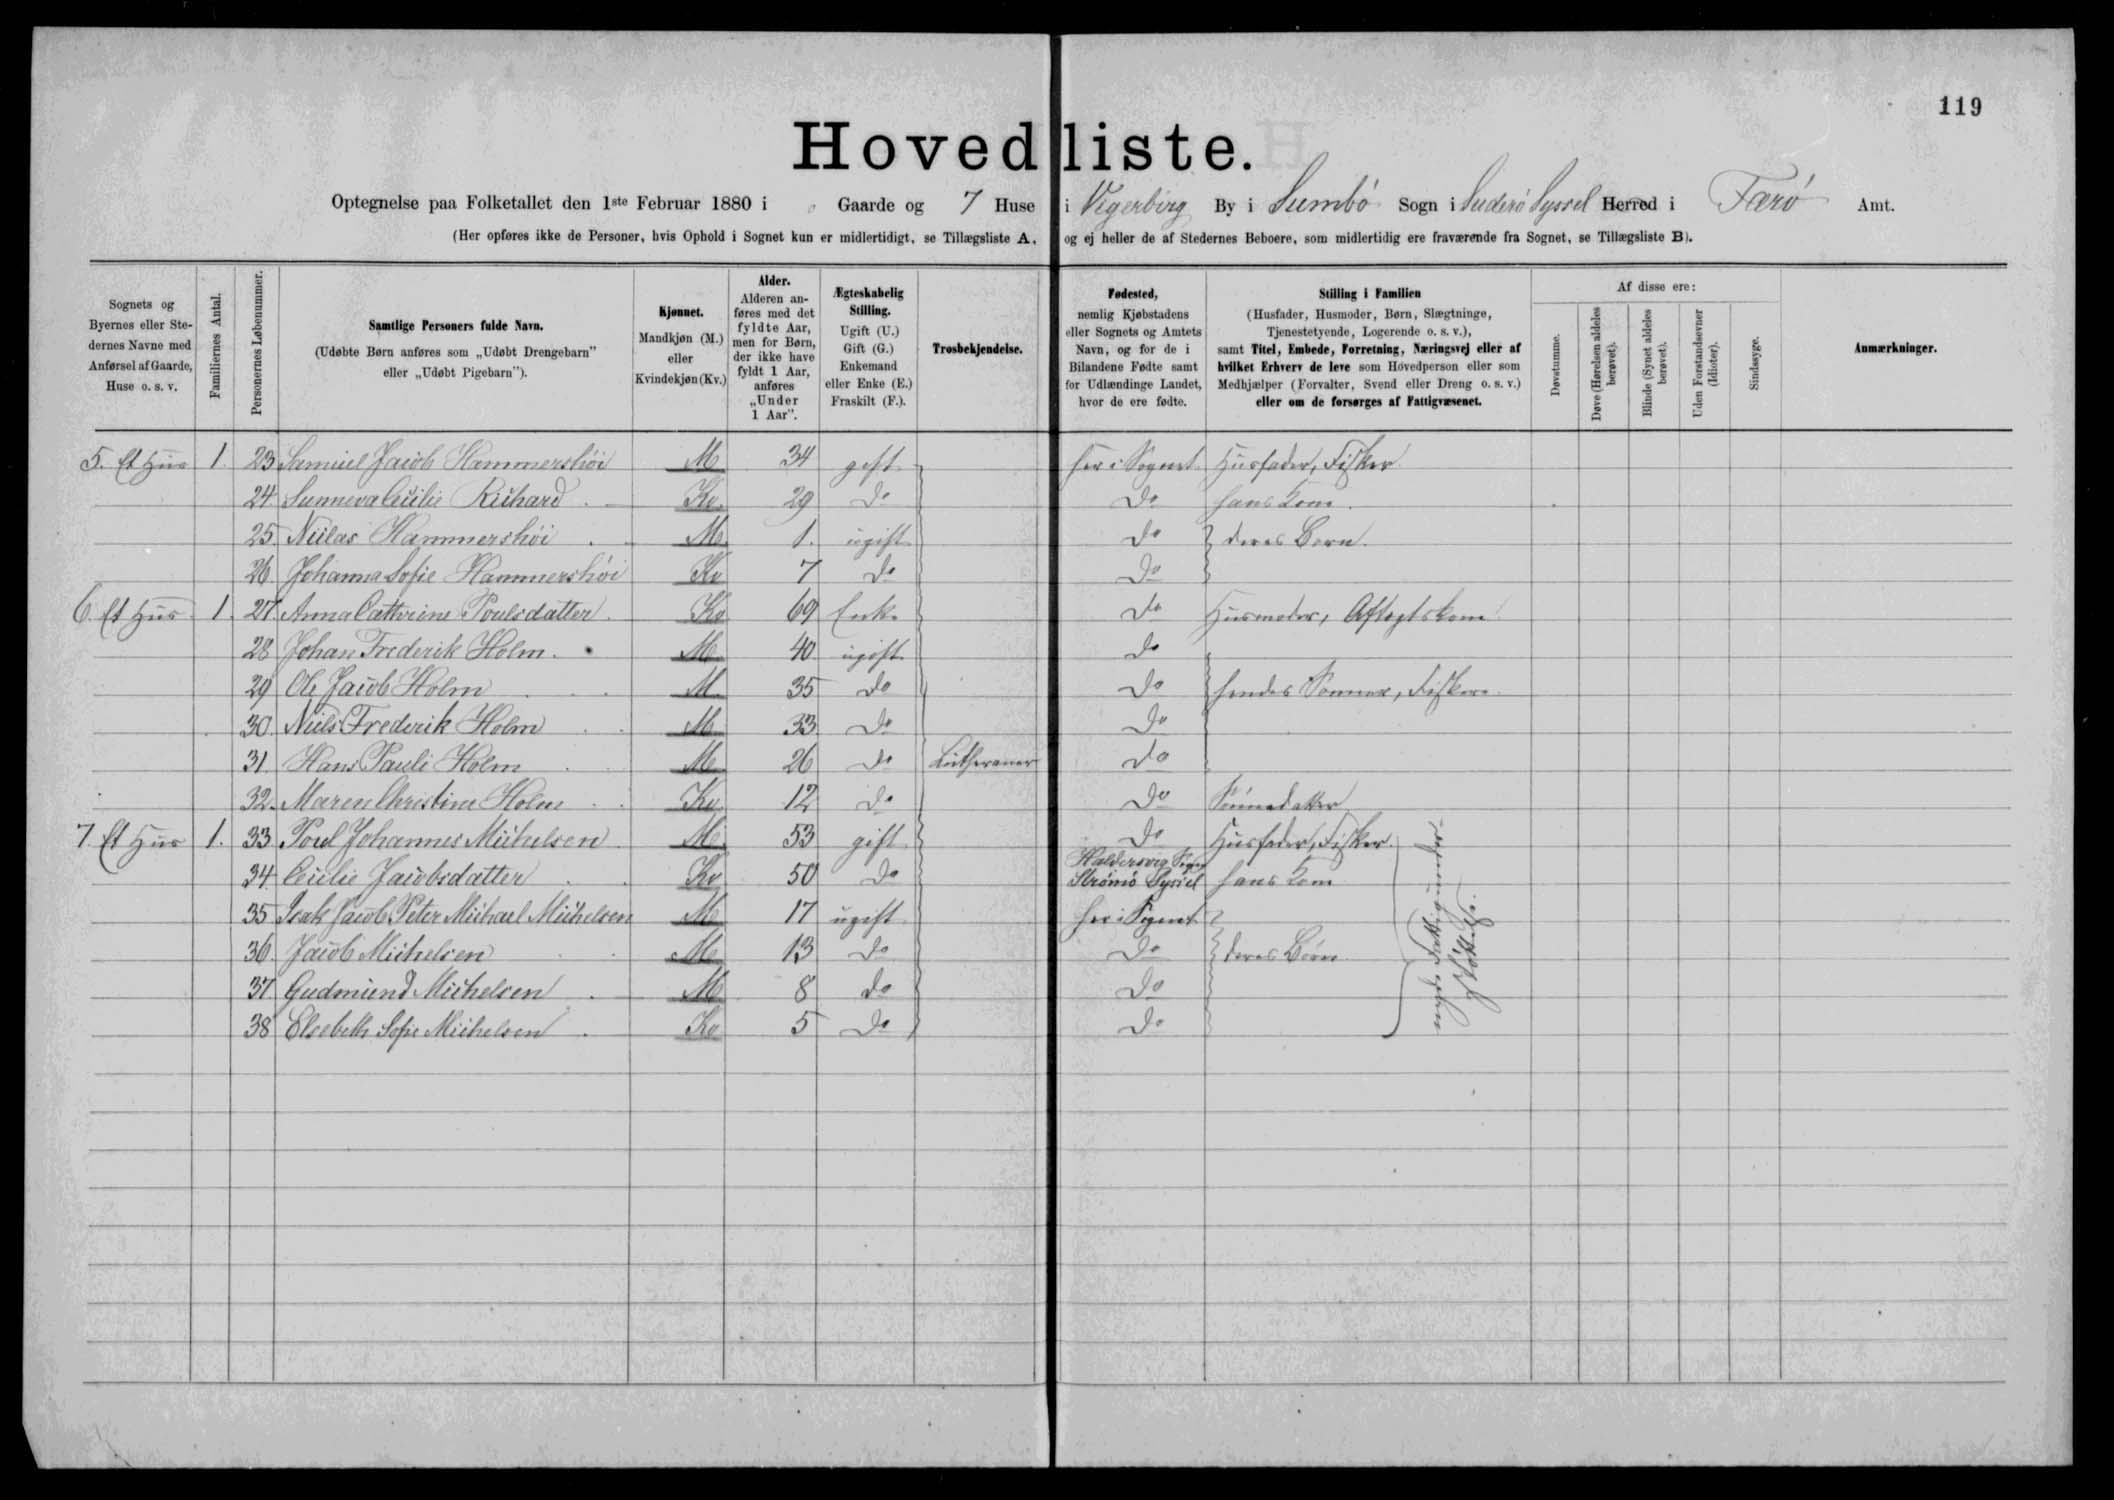 119
Hovedliste.
Optegnelse paa Folketallet den 1ste Februar 1880 i 0 Gaarde og 7 Huse i Vegerbirg By i Sumbø Sogn i Suderø Syssel Herred i Færø Amt.
(Her opføres ikke de Personer, hvis Ophold i Sognet kun er midlertidigt, se Tillægsliste A, og ej heller de af Stedernes Beboere, som midlertidig ere fraværende fra Sognet, se Tillægsliste B).
Sognets og
Byernes eller Ste-
dernes Navne med
Anførsel af Gaarde,
Huse o. s. v.
Familiernes Antal.
Personernes Løbenummer.
Samtlige Personers fulde Navn.
(Udøbte Børn anføres som „Udøbt Drengebarn"
eller „Udøbt Pigebarn").
Kjønnet.
Mandkjøn (M.)
eller
Kvindekjøn (Kv.)
Alder.
Alderen an-
føres med det
fyldte Aar,
men for Børn,
der ikke have
fyldt 1 Aar,
anføres
„Under
1 Aar".
Ægteskabelig
Stilling.
Ugift (U.)
Gift (G.)
Enkemand
eller Enke (E.)
Fraskilt (F.).
Trosbekjendelse.
Fødested,
nemlig Kjøbstadens
eller Sognets og Amtets
Navn, og for de i
Bilandene Fødte samt
for Udlændinge Landet,
hvor de ere fødte.
Stilling i Familien
(Husfader, Husmoder, Børn, Slægtninge,
Tjenestetyende, Logerende o. s. v.),
samt Titel, Embede, Forretning, Næringsvej eller af
hvilket Erhverv de leve som Hovedperson eller som
Medhjælper (Forvalter, Svend eller Dreng o. s. v.)
eller om de forsørges af Fattigvæsenet.
Af disse ere:
Døvstumme.
Døve (Hørelsen aldeles
berøvet).
Blinde (Synet aldeles
berøvet).
Uden Forstandsevner
(Idioter).
Sindssyge.
Anmærkninger.
5. Et Hus 1. 23 Samuel Jacob Hammershøi M 34 gift her i Sognet Husfader, Fisker
24 Sunneva Cecilie Richard Kv 29 do do hans Kone
25 Niclas Hammershøi M 1. ugift do deres Børn.
26 Johanna Sofie Hammershøi Kv 7 do do
6. Et Hus 1. 27 Anna Cathrine Poulsdatter Kv 69 Enke do Husmoder, Aftægtskone
28 Johan Frederik Holm. M 40 ugift do
29 Ole Jacob Holm M. 35 do do hendes Sønner, Fiskere
30. Niels Frederik Holm M 33 do do
31. Hans Pauli Holm M 26 do Lutheraner do
32. Maren Christine Holm Kv 12 do do Sønnedatter
7. Et Hus 1. 33 Poul Johannes Michelsen M. 53 gift do Husfader, Fisker.
34 Cecilie Jacobsdatter Kv 50 do Haldersvig Sogn
Strømø Syssel hans Kone
35 Isak Jacob Peter Michael Michelsen M 17 ugift her i Sognet
36. Jacob Michelsen M 13 do do deres Børn
37 Gudmund Michelsen M 8 do do
38 Elsebeth Sofie Michelsen Kv 5 do do
nyde Fattigunder-
støttelse.